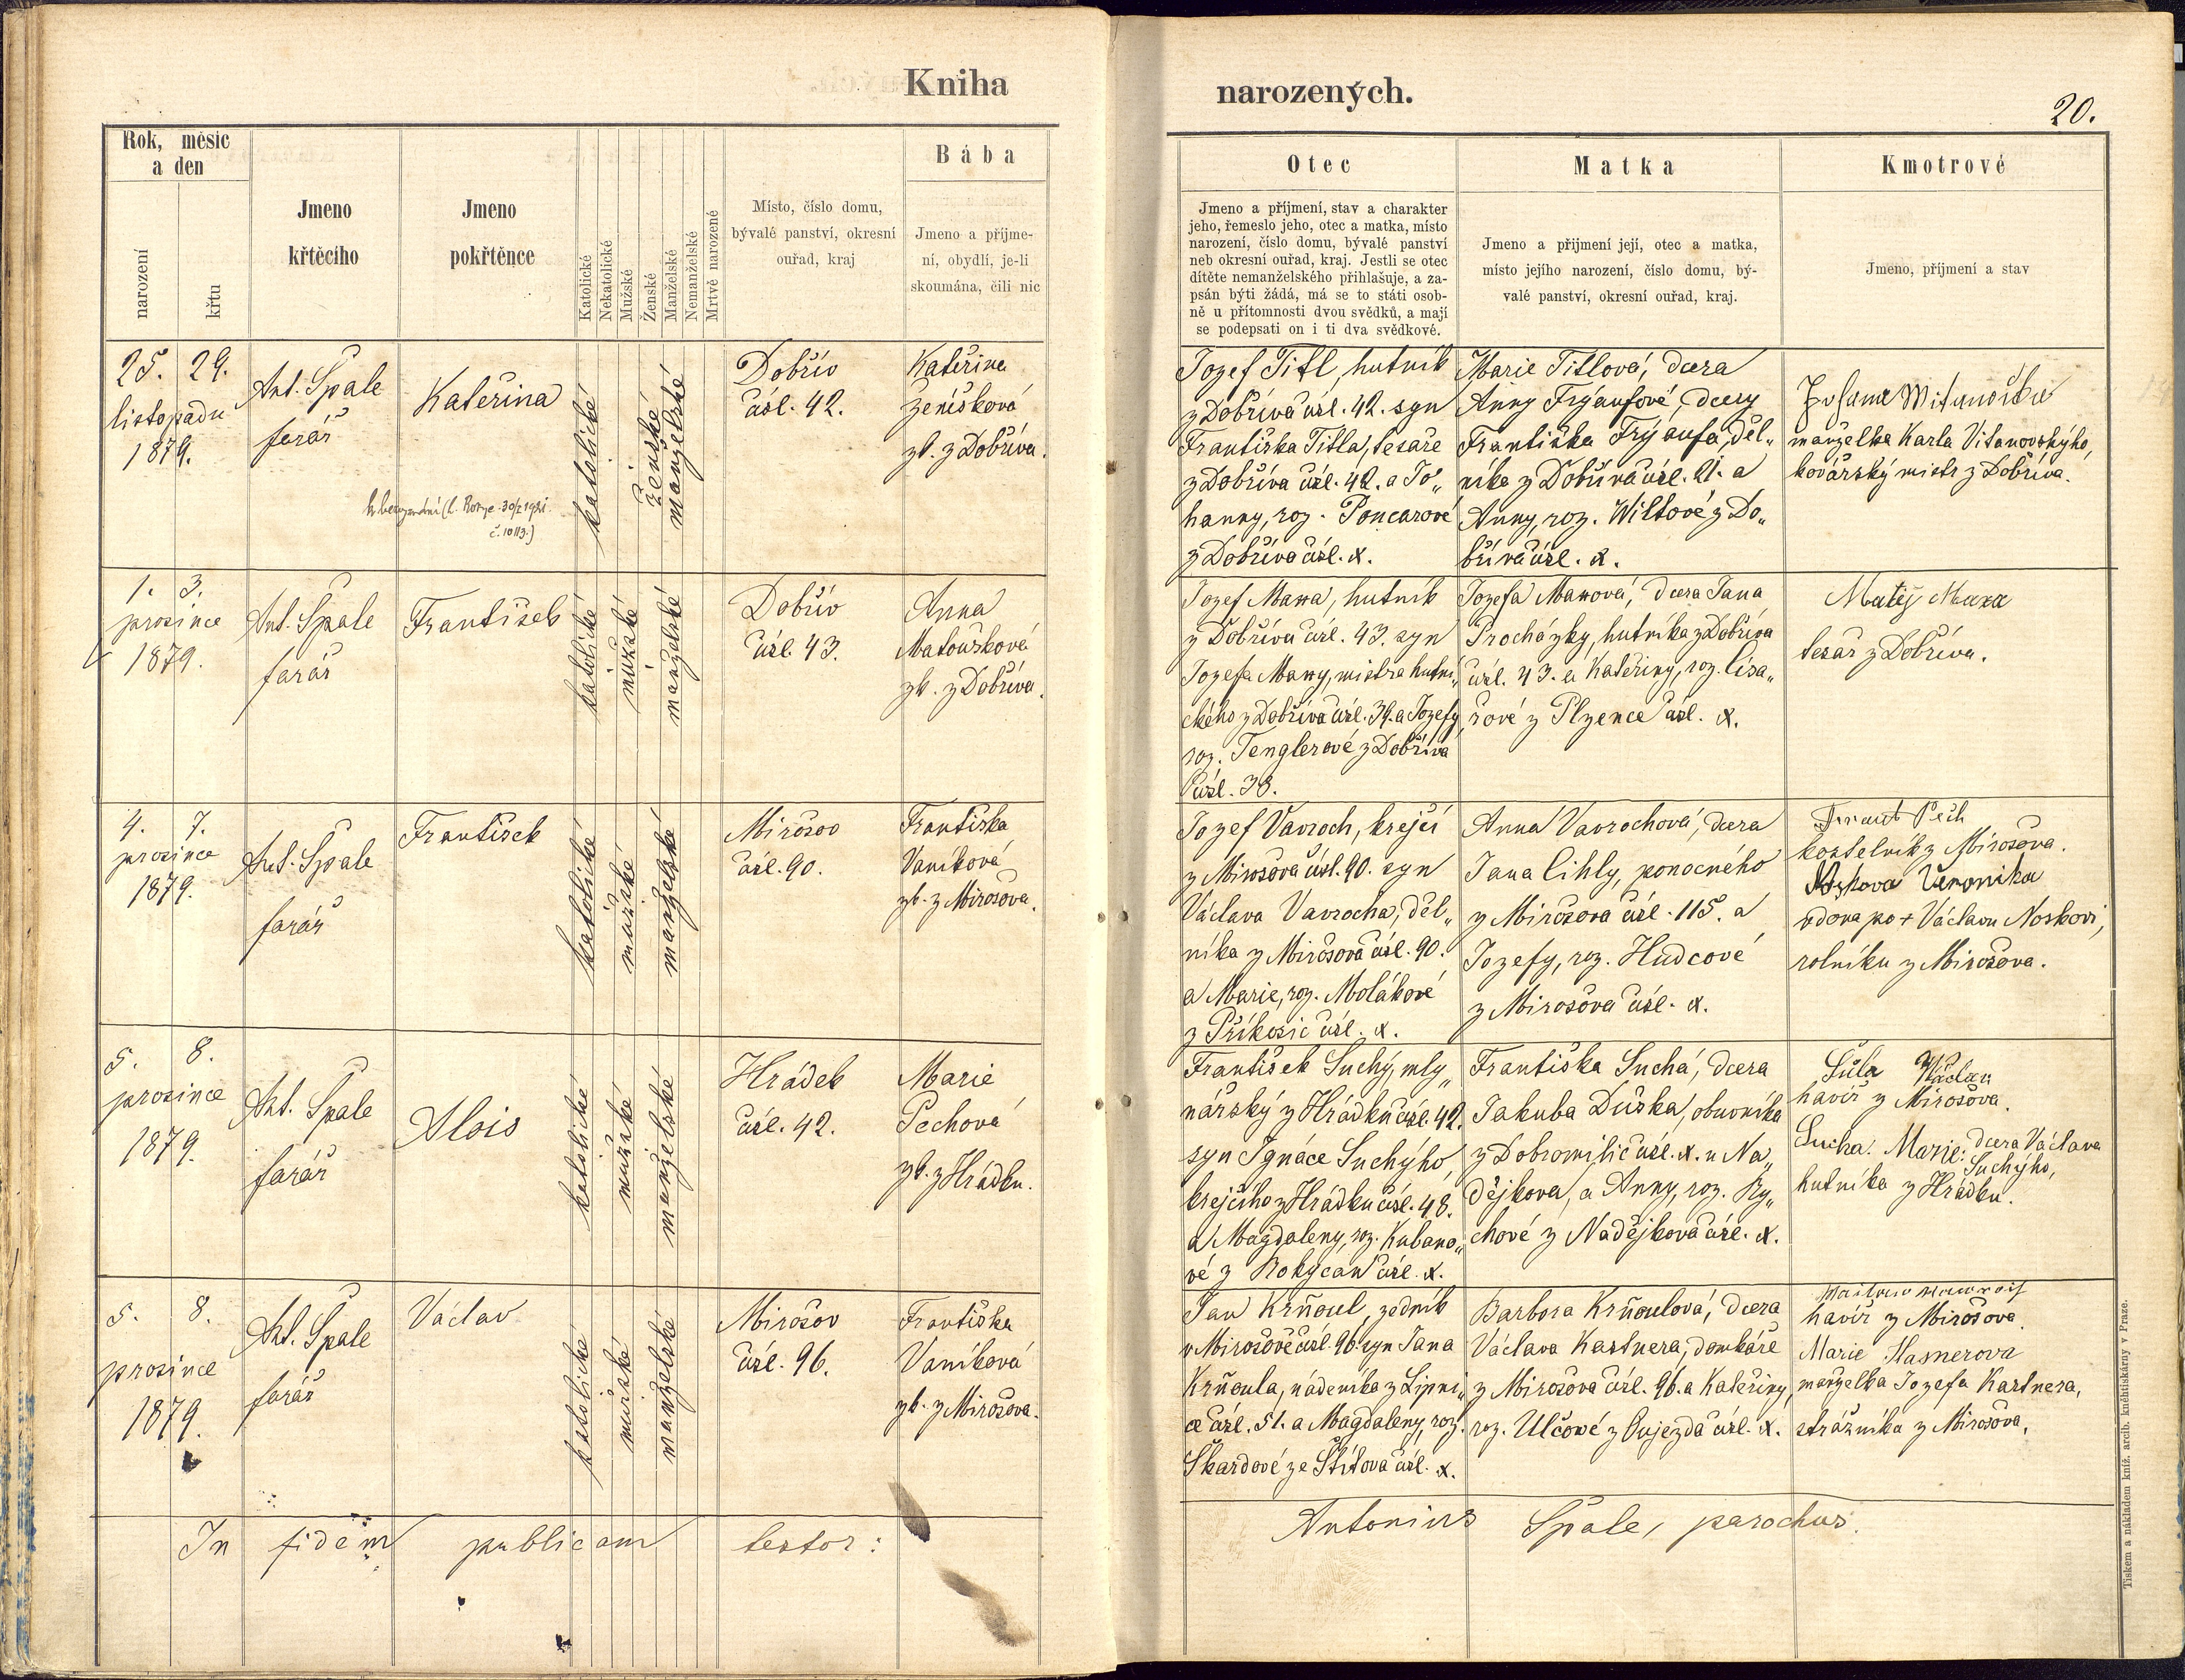 Kniha
narozených.
20.
Rok, měsíc
a den
narození
křtu
Jmeno
křtěcího
Jmeno
pokřtěnce
Katolické
Nekatolické
Mužské
Ženské
Manželské
Nemanželské
Mrtvě narozené
Místo, číslo domu,
bývalé panství, okresní
ouřad, kraj
Bába
Jmeno a příjme-
ní, obydlí, je-li
skoumána, čili nic
Otec
Jmeno a příjmení, stav a charakter
jeho, řemeslo jeho, otec a matka, místo
narození, číslo domu, bývalé panství
neb okresní ouřad, kraj. Jestli se otec
dítěte nemanželského přihlašuje, a za-
psán býti žádá, má se to státi osob-
ně u přítomnosti dvou svědků, a mají
se podepsati on i ti dva svědkové.
Matka
Jmeno a přijmení její, otec a matka,
místo jejího narození, číslo domu, bý-
valé panství, okresní ouřad, kraj.
Kmotrové
Jmeno, příjmení a stav
25. 29.
listopadu
1879.
Ant. Špale
farář
Kateřina
č. 10113.)
katolické
ženské
manželské
Dobřív
čísl. 42.
Kateřina
Zeníšková
zk. z Dobříva.
Jozef Titl, hutník
z Dobříva čísl. 42. syn
Františka Titla, tesaře
z Dobříva čísl. 42. a Jo„
hanny, roz. Poncarové
z Dobříva čísl. x.
Marie Titlová, dcera
Anny Frýaufové, dcery
Františka Frýaufa, děl„
níka z Dobříva čísl. 21. a
Anny, roz. Wiltové z Do„
bříva čísl. x.
manželka Karla Vitanovskýho,
kovářský mistr z Dobříva.
1. 3.
prosince
1879.
Ant. Špale
farář
František
katolické
mužské
manželské
Dobřív
čísl. 43.
Anna
Matoušková
zk. z Dobříva.
Jozef Mana, hutník
z Dobříva čísl. 43. syn
Jozefa Many, mistra hutni„
ckého z Dobříva čísl. 39. a Jozefy
roz. Tenglerové z Dobříva
čísl. 38.
Jozefa Manová, dcera Jana
Procházky, hutníka z Dobříva
čísl. 43. a Kateřiny, roz. Císa„
řové z Plzence čísl. x.
Matěj Mana
tesař z Dobříva.
4. 7.
prosince
1879.
Ant. Špale
farář
František
katolické
mužské
manželské
Mirošov
čísl. 90.
Františka
Vaníková
zk. z Mirošova.
Jozef Vavroch, krejčí
z Mirošova čísl. 90. syn
Václava Vavrocha, děl„
níka z Mirošova čísl. 90.
a Marie, roz. Molákové
z Příkosic čísl. x.
Anna Vavrochová, dcera
Jana Cihly, ponocného
z Mirošova čísl. 115. a
Jozefy, roz. Hudcové
z Mirošova čísl. x.
Frant Pech
kostelník z Mirošova.
Nosková Veronika
vdova po + Václavu Noskovi,
rolníku z Mirošova.
5. 8.
prosince
1879.
Ant. Špale
farář
Alois
katolické
mužské
manželské
Hrádek
čísl. 42.
Marie
Pechová
zk. z Hrádku.
František Suchý, mly„
nářský z Hrádku čísl. 42.
syn Ignáce Suchýho,
krejčího z Hrádku čísl. 48.
a Magdaleny, roz. Kubano„
vé z Rokycan čísl. x.
Františka Suchá, dcera
Jakuba Duška, obuvníka
z Dobromilic čísl. x. u Na„
dějkova, a Anny, roz. Ry„
chové z Nadějkova čísl. x.
Šůla Václav
havíř z Mirošova.
Suchá Marie: dcera Václava
Suchýho,
hutníka z Hrádku.
5. 8.
prosince
1879.
Ant. Špale
farář
Václav
katolické
mužské
manželské
Mirošov
čísl. 96.
Františka
Vaníková
zk. z Mirošova.
Jan Krňoul, zedník
v Mirošově čísl. 96. syn Jana
Krňoula, nádeníka z Lipni„
ce čísl. 51. a Magdaleny, roz.
Škardové ze Štítova čísl. x.
Barbora Krňoulová, dcera
Václava Kastnera, domkáře
z Mirošova čísl. 96. a Kateřiny,
roz. Ulčové z Oujezda čísl. x.
havíř z Mirošova.
Marie Kasnerova
manželka Jozefa Kastnera,
strážníka z Mirošova.
In fidem publicam testor:
Antonius Špale, parochus.
Tiskem a nákladem kníž. arcib. knéhtiskárny v Praze.